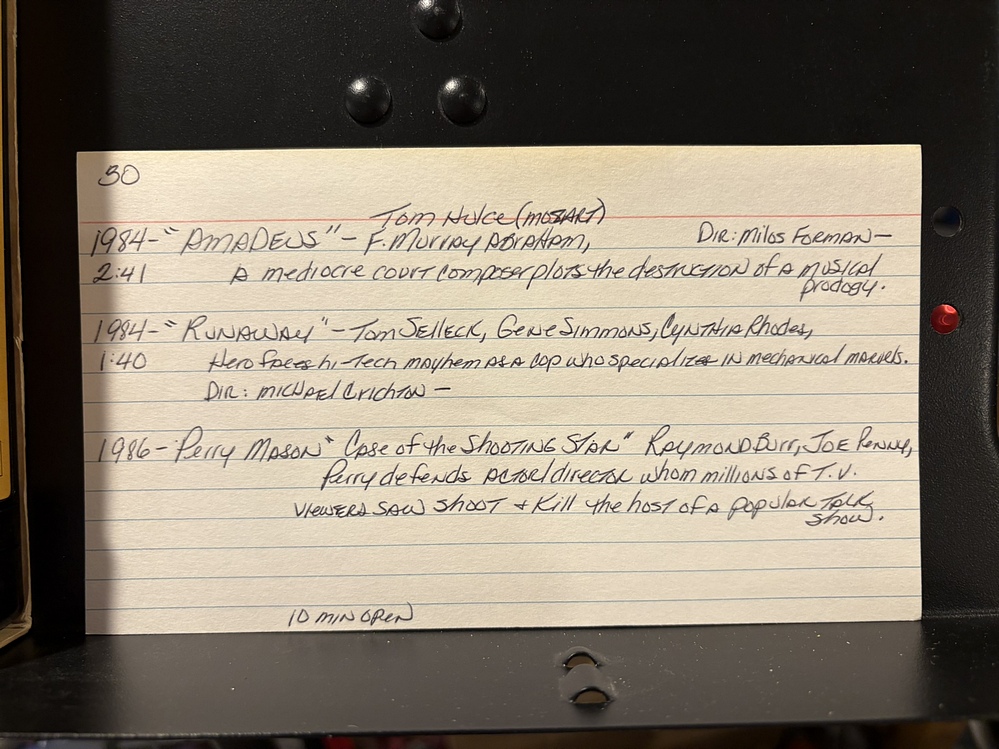 30
Tom Hulce (MOZART)
1984-"AMADEUS"- F. Murray ABRAHAM, Dir: Milos Forman-
2:41 A mediocre court composer plots the destruction of a musical
prodogy.
1984-"RUNAWAY"- Tom Selleck, Gene Simmons, Cynthia Rhodes,
1:40 Hero faces hi-Tech mayhem as a cop who specializes in mechanical marvels.
Dir: Michael Crichton -
1986- Perry Mason "Case of the Shooting Star" Raymond Burr, Joe Penny,
Perry defends actor/director whom millions of T.V.
viewers saw shoot + kill the host of a popular talk
show.
10 min open